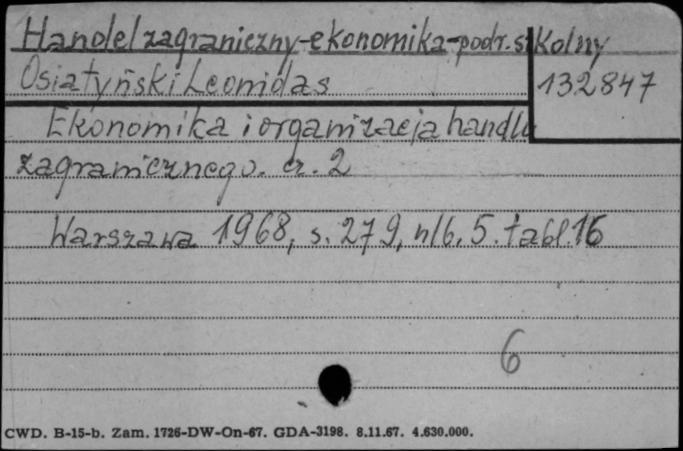 Handel zagraniczny-ekonomika-podr. szkolny
Osiatyński Leonidas
132847
Ekonomika i organizacja handlu
zagranicznego. cz. 2
Warszawa 1968, s. 279, nlb. 5. tabl. 16
6
CWD. B-15-b. Zam. 1726-DW-On-67. GDA-3198. 8.11.67. 4.630.000.